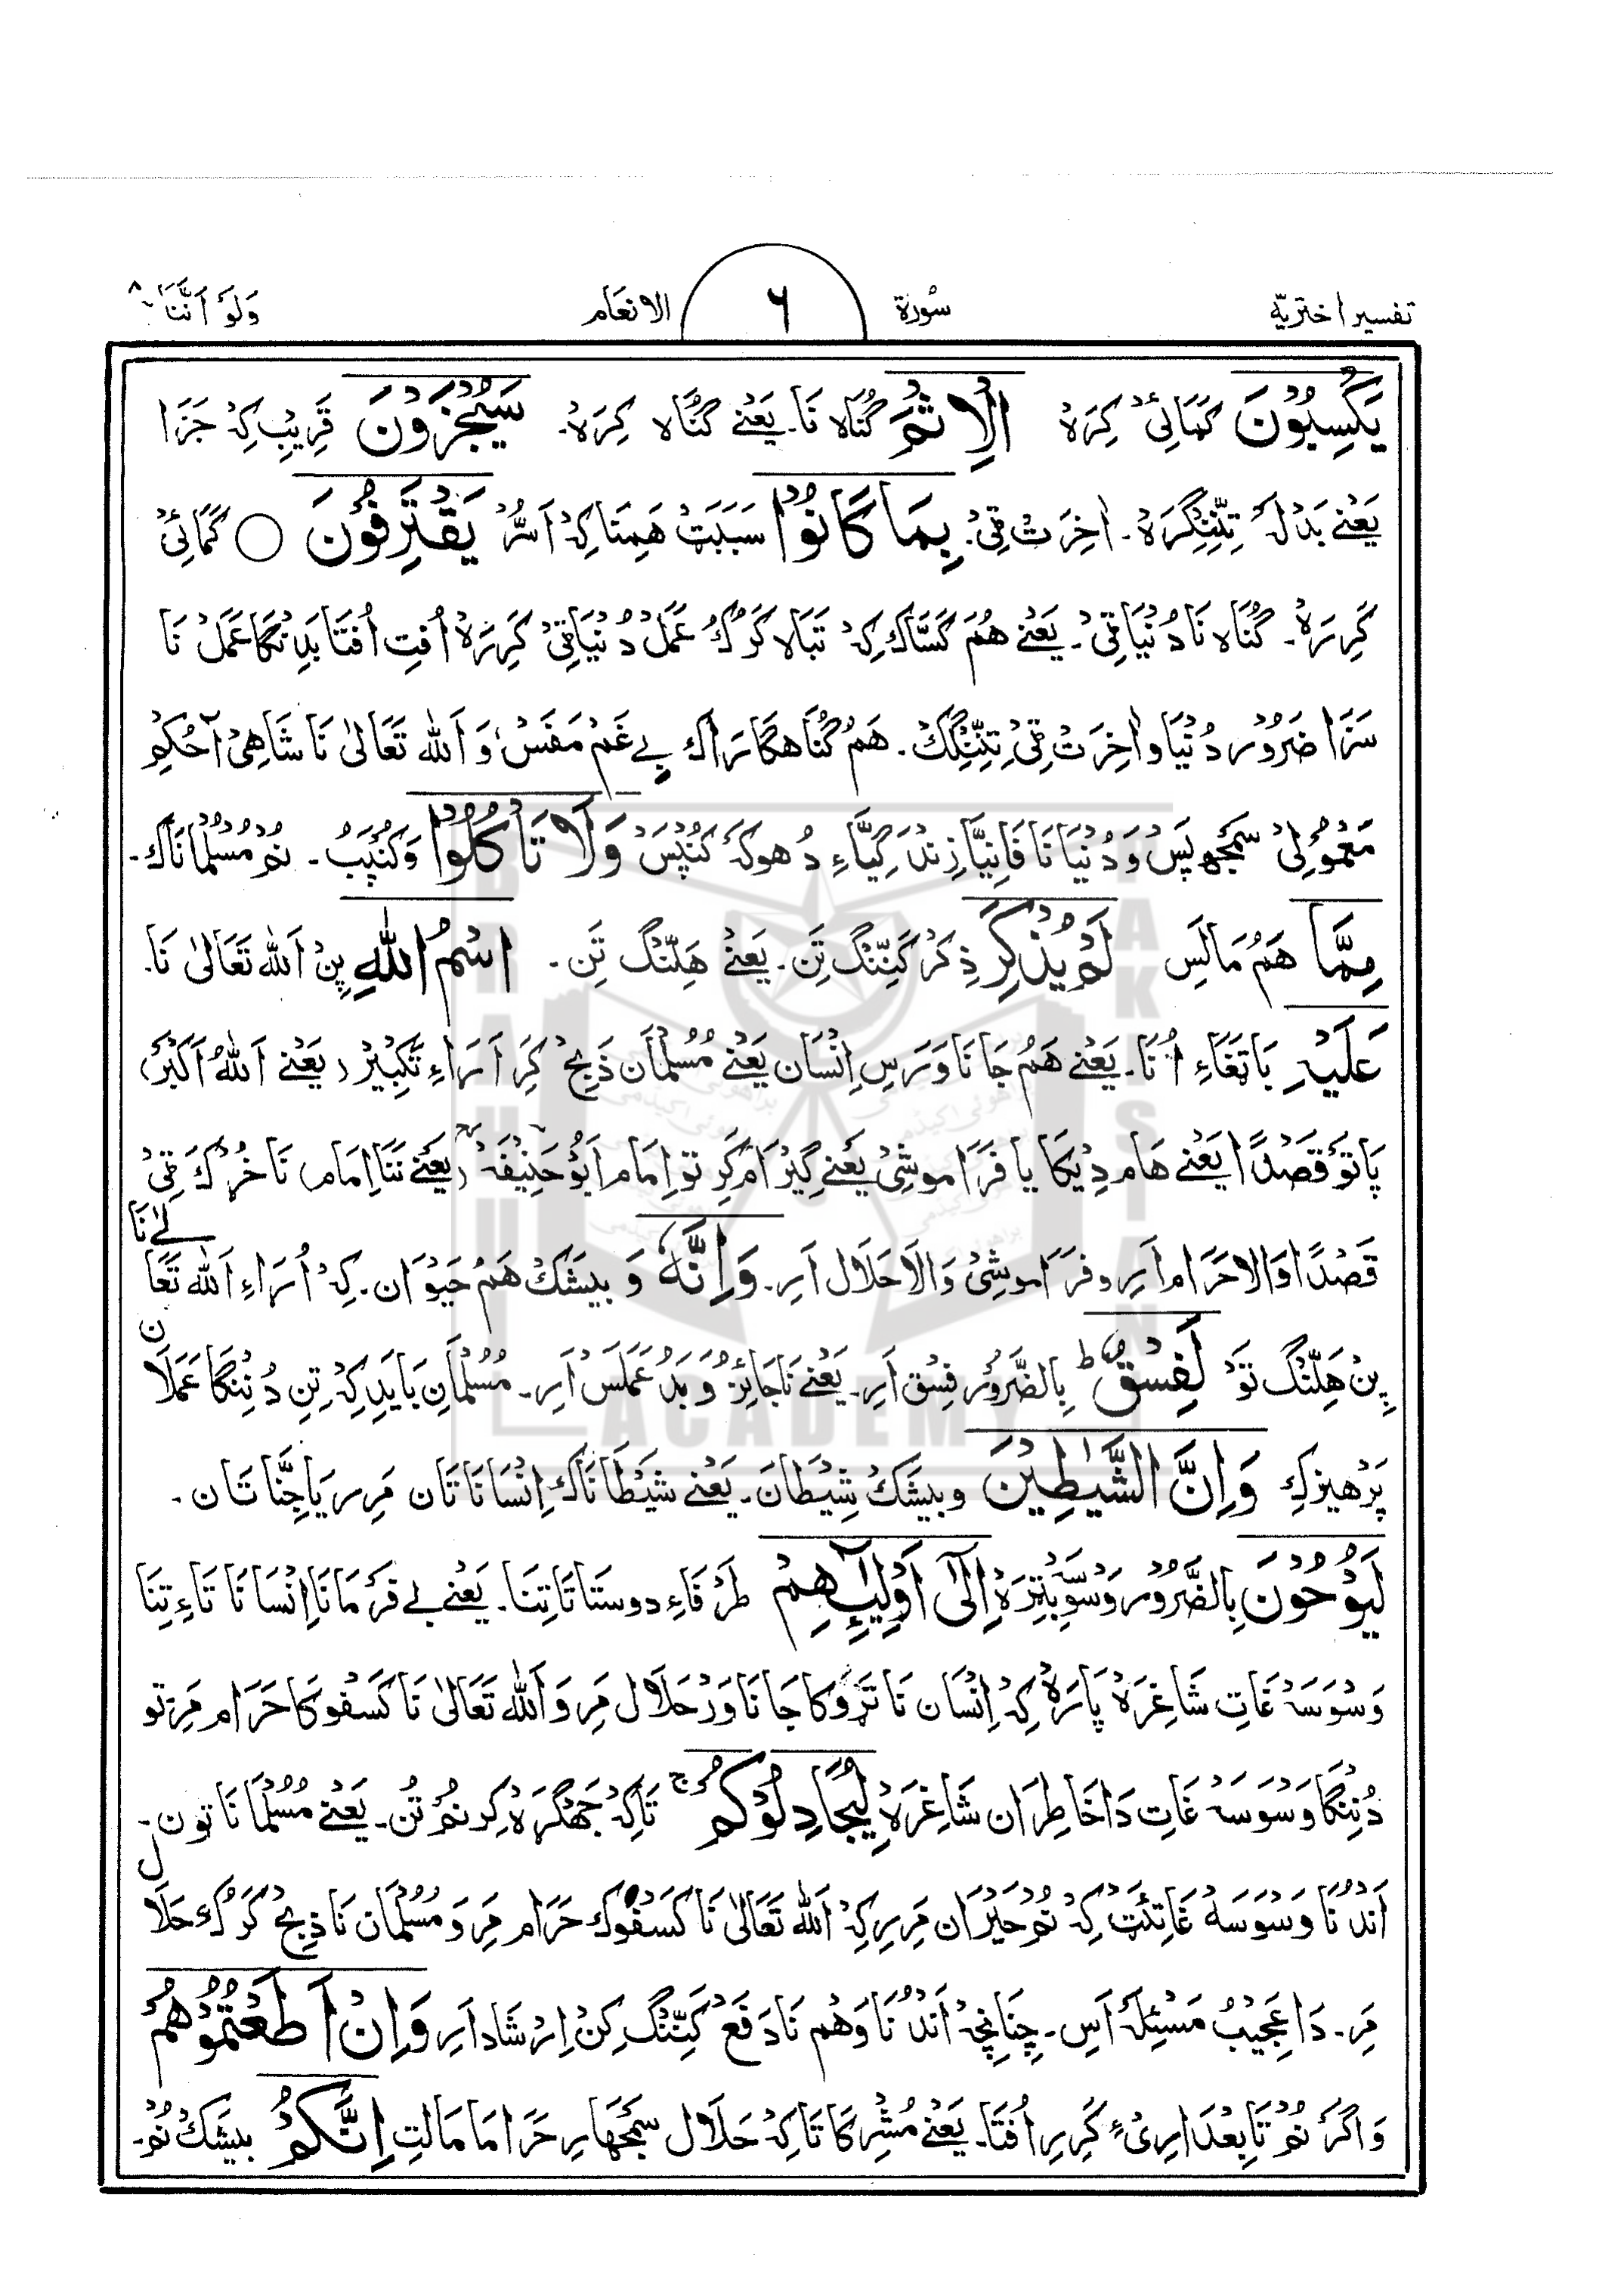 تفسیر اختریّه سُورة ٦ الانعَام وَلَوْ اَنَّنَا ۸
یَکْسِبُوْنَ کمَائیْ کِرَہْ الْاِثْمَ گُنَاہ نَا۔ یَعْنے گُنَاہ کِرَہْ۔ سَیُجْزَوْنَ قَرِیبْ کِہْ جَزَا
یَعْنے بَدْلَہ تِنِّنگِرَہْ۔ اٰخِرَتْ ٹِی۔ بِمَا کَانُوْا سَبَبَتْ ھَمِنَا کِہْ اَسُّرْ یَقْتَرِفُوْنَ ○ کَمَائِیْ
کَرِرَہْ۔ گُنَاہ نَا دُنْیَا ٹِی۔ یَعْنے ھُمْ کَسَّاک کِہْ تَبَالا کَرُکْ عَمَلْ دُنْیَا ٹِی کَرِرَہْ اُفتِ اُفتَا بَدِ نگَا عَمَلْ نَا
سَزَا ضَرُوْر دُنْیَا و اٰخِرَتْ ٹِی تِنِّنگِکْ۔ ھَمُ گُنَاھگَارَاکْ بے غَمْ مَفَسْ وَ اَللّٰه تَعَالیٰ نَا شَاھِیْ آ حُکمِ
مَعْمُوْلِیْ سَمْجھپَسْ وَ دُنْیَا نَا فَانِیَّا زِنْدَگِیَّاءِ دُھوکَہْ کُنْپَسْ وَلَا تَاْکُلُوْا وَکُنْپَبْ۔ نُمْ مُسْلمَانَاکْ۔
مِمَّا ھَمُ مَالَسِ لَمْ یُذْکَرِ ذِکرْ کَنِّنْگ تَن۔ یَعْنے ھَلِّنْگ تَن۔ اسْمُ اللّٰهِ پِنْ اَللّٰه تَعَالیٰ نَا۔
عَلَیْهِ بَاتِغَاءِ اُنَا۔ یَعْنے ھَمُ جَانَاوَرَسِ اِنْسَان یَعْنے مُسْلمَان ذَبِحْ کَرِ اَرَاءِ تَکْبِیْر (یَعْنے اَللّٰهُ اَکْبَرْ)
پَاتَوْ قَصْدًا یَعْنے ھَام دِیْکَا یَا فَرَامُوشِیْ یَعْنے گِیْرَام کَرِ تو اِمَام اَبُوْ حَنِیْفَہْ (یَعْنے نَنَا اِمَام) نَا خُرُکَ ٹِی
قَصْدًا وَالا حَرَام اَرِ و فَرَامُوشِیْ وَالَا حَلَال اَرِ۔ وَاِنَّهٗ وَ بیشَکْ ھَمُ حَیْوَان۔ کِہْ اُرَاءِ اَللّٰه تَعَالےٰ نَا
پِنْ ھَلِّنْگ تَوْ لَفِسْقٌ ط بِالضَّرُوْر فِسْق اَرِ۔ یَعْنے نَاجَائِز وَ بَدْ عَمَلَسْ اَرِ۔ مُسْلمَانِ بَایَدِ کِہْ تِن دُنِنگَا عَمَلَان
پَرْھیزکِ وَاِنَّ الشَّیٰطِیْنَ وبیشَکْ شَیْطَان۔ یَعْنے شَیْطَانَاکْ اِنْسَانَاتَان مَرِر یَا جِنَّاتَان۔
لَیُوْحُوْنَ بِالضَّرُوْر وَسْوَسَہْ تِرَہْ اِلٰٓی اَوْلِیٰٓئِھِمْ طَرْفَاءِ دوستَاتَا تِنَا۔ یَعْنے بے فَرمَانَا اِنْسَانَاتَاءِ تِنَا
وَسْوَسَہ غَاتِ شَاغِرَہْ پَارَہْ کِہْ اِنْسَان نَا تَرَوکَا جَانَاوَرْ حَلَال مَرِ وَ اَللّٰه تَعَالیٰ نَا کَسْفوکَا حَرَام مَرِ تو
دُنِنگَا وَسْوَسَہْ غَاتِ دَا خَاطِرَان شَاغِرَہْ لِیُجَادِلُوْکُمْ ج تَاکِہْ جَھگْرَہْ کِر نُمْ تُن۔ یَعْنے مُسْلمَانَا تون۔
اَنْدُنَا وَسْوَسَهْ غَاتِئَتْ کِہْ نُم حَیْرَان مَرِر کِہْ اَللّٰه تَعَالیٰ نَا کَسْفُوکْ حَرَام مَرِ وَ مُسْلمَان نَا ذَبِحْ کَرُک حَلَال
مَرِ۔ دَا عَجِیْبْ مَسْئِلَہ اَسِ۔ چِنَانچِہْ اَنْدُنَا وَھْم نَا دَفَعْ کَنِّنْگ کِنْ اِرْشَاد اَرِ وَاِنْ اَطَعْتُمُوْھُمْ
وَ اگَرْ نُمْ تَابِعْدَارِیْ کَرِرِ اُفتَا۔ یَعْنے مُشْرِکَاتَا کِہْ حَلَال سَمْجھَارِ حَرَامَا مَالتِ اِنَّکُمْ بیشَکْ نُمْ۔